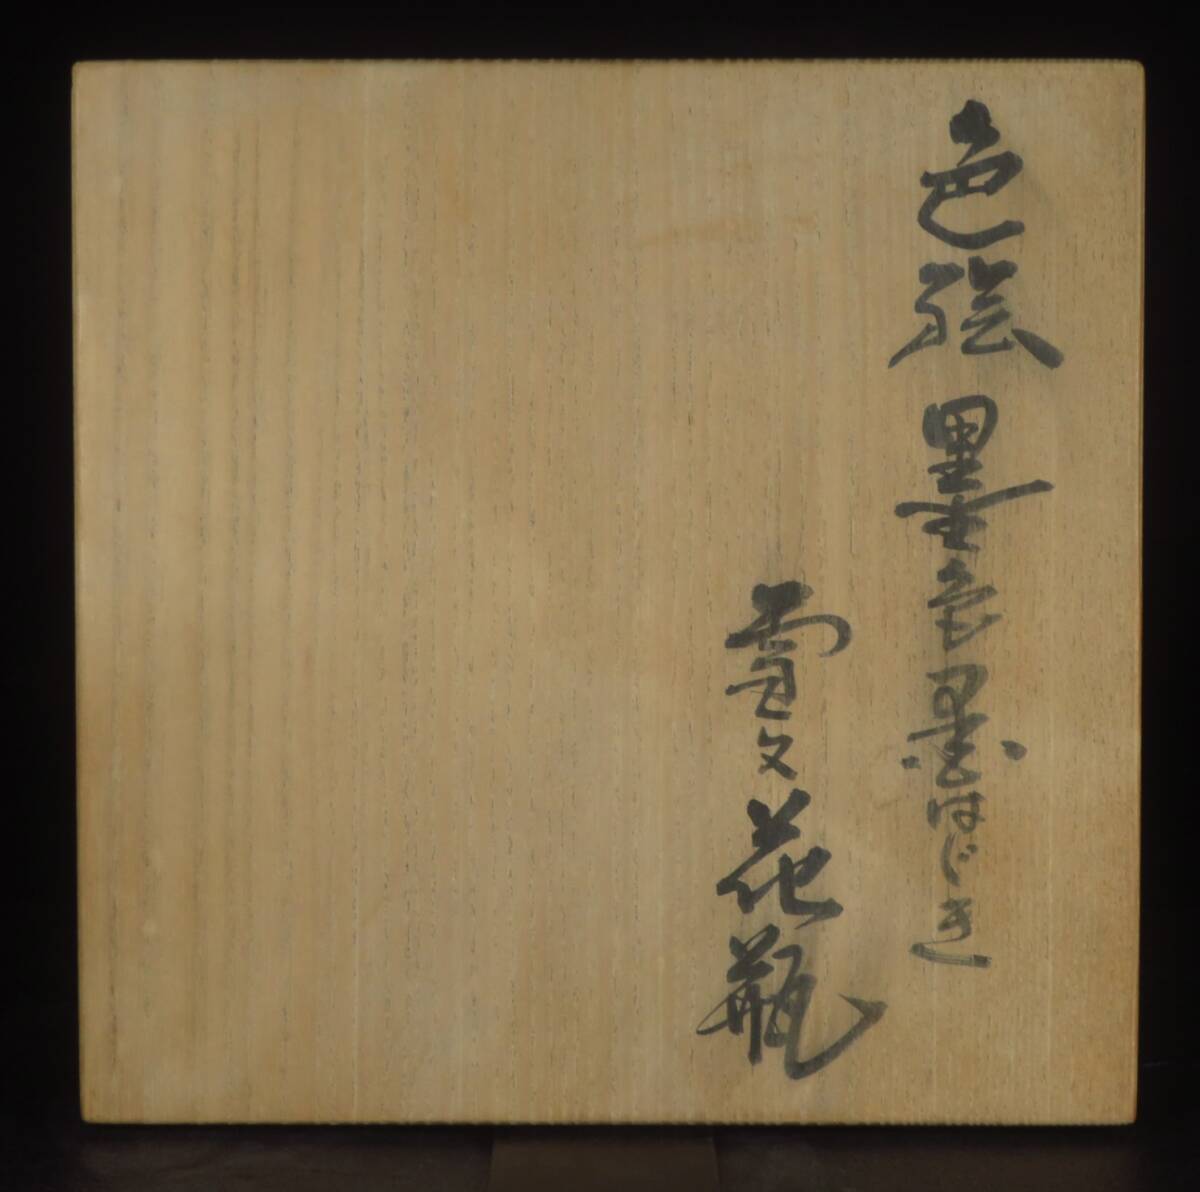 色絵墨色墨はじき
雪文花瓶